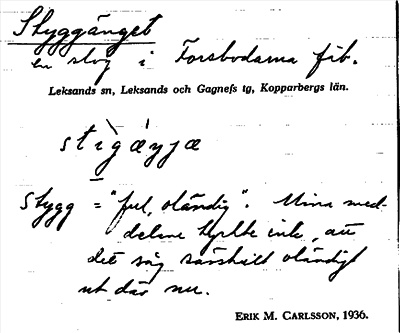 Styggänget
en slog i Forsbodarna fäb.
Leksands sn, Leksands och Gagnefs tg, Kopparbergs län.
stygg = "ful, oländig". Mina med-
delare tyckte inte, att
det såg särskilt oländigt
ut där nu.
ERIK M. CARLSSON, 1936.